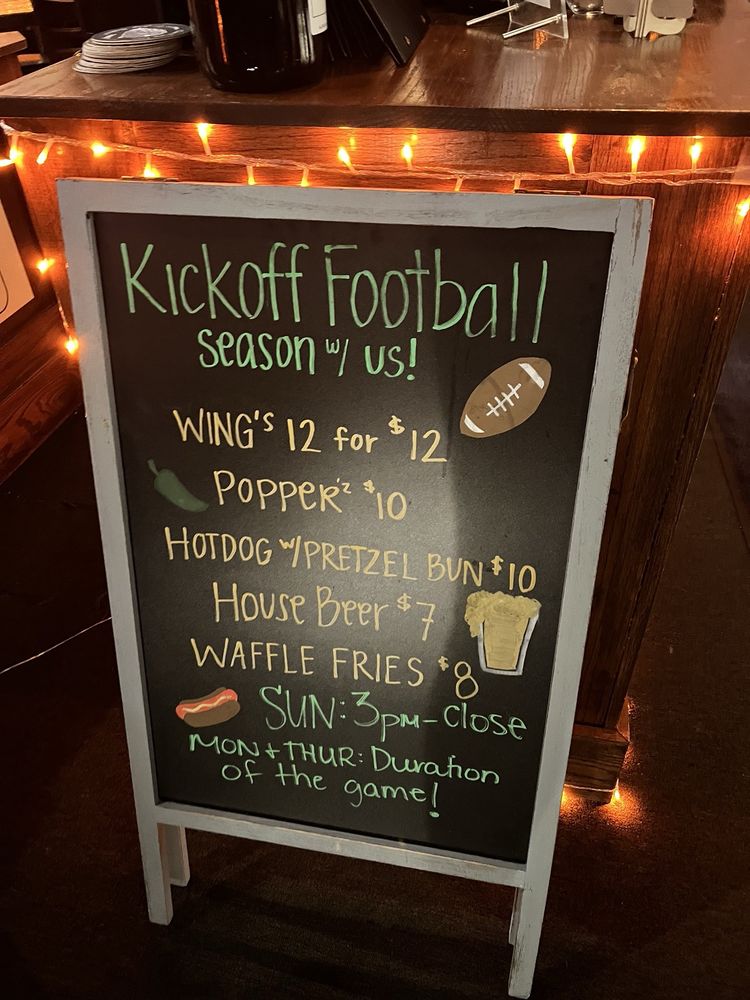 Kickoff Football
season w/ us!
WING's 12 for $12
POPPER'z $10
HOTDOG w/PRETZEL BUN $10
House Beer $7
WAFFLE FRIES $8
SUN: 3pm-Close
MON + THUR: Duration
of the game!